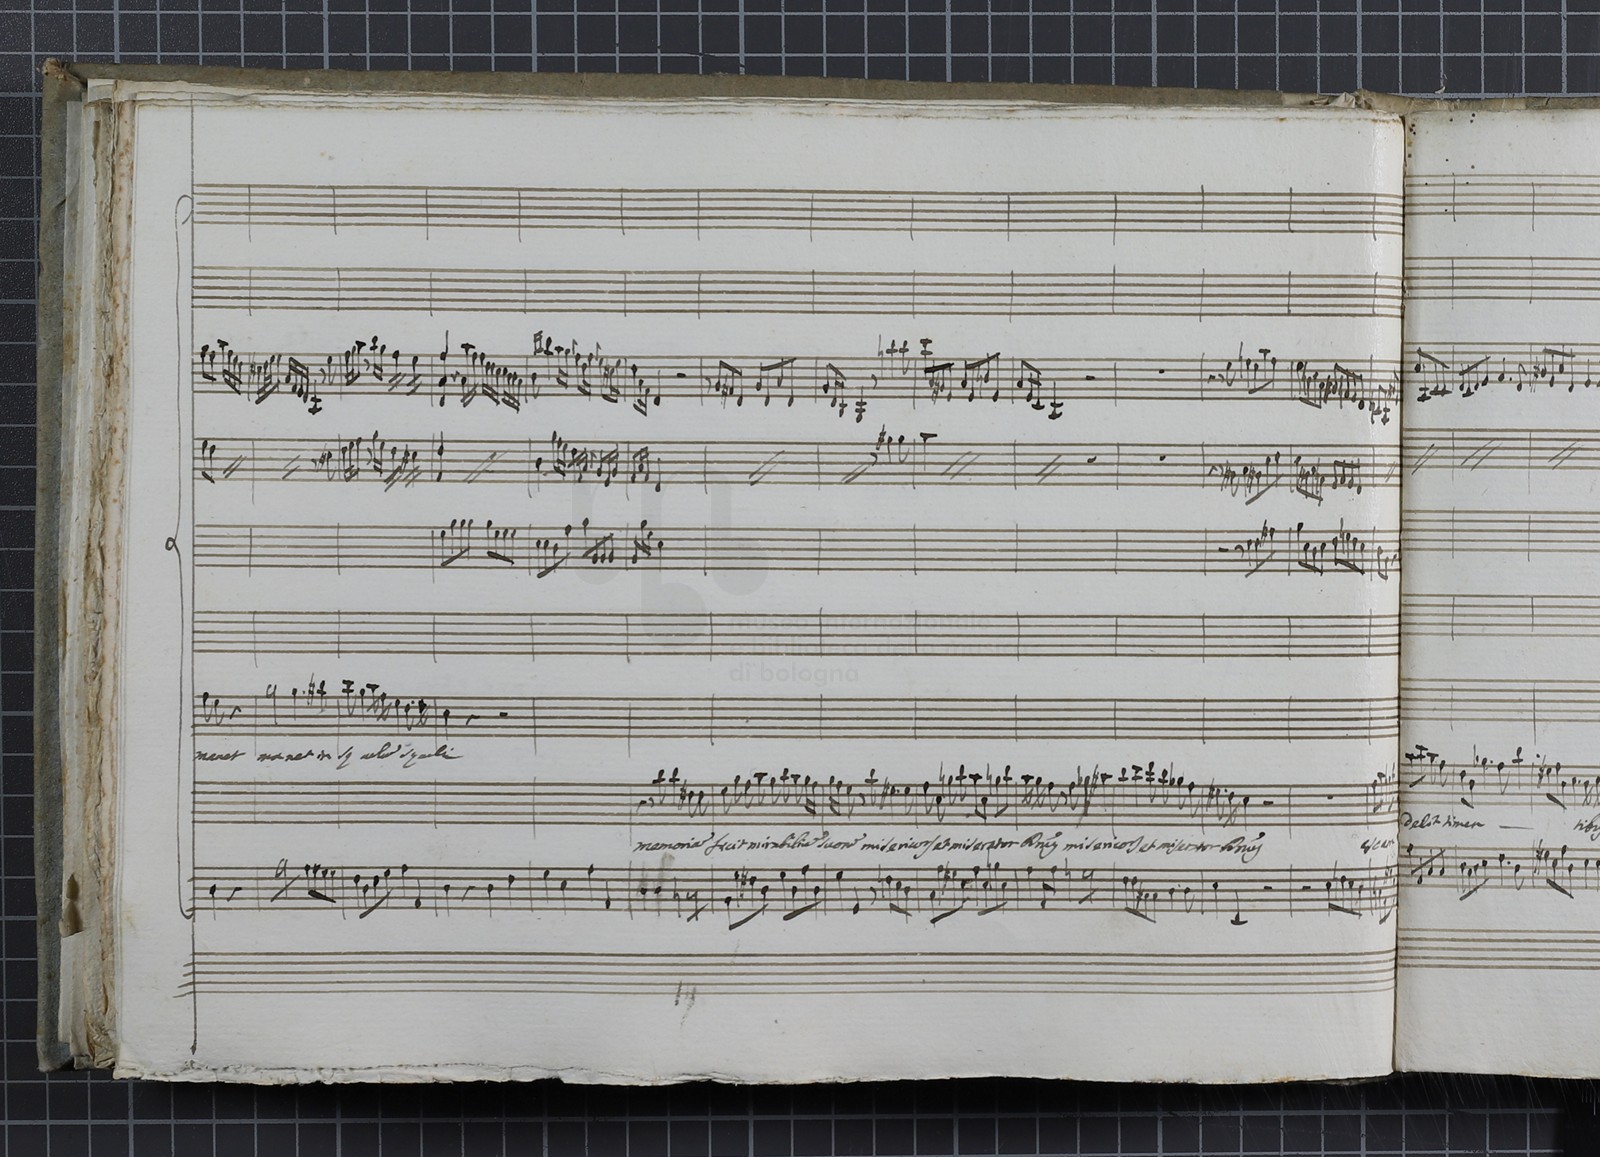 manet manet in seculũ seculi
memoriã fecit mirabiliũ suorũ misericors et miserator Dnus misericors et miserator Dnus escam
Dedit timen — tibus
museo internazionale
e biblioteca della musica
di bologna
14